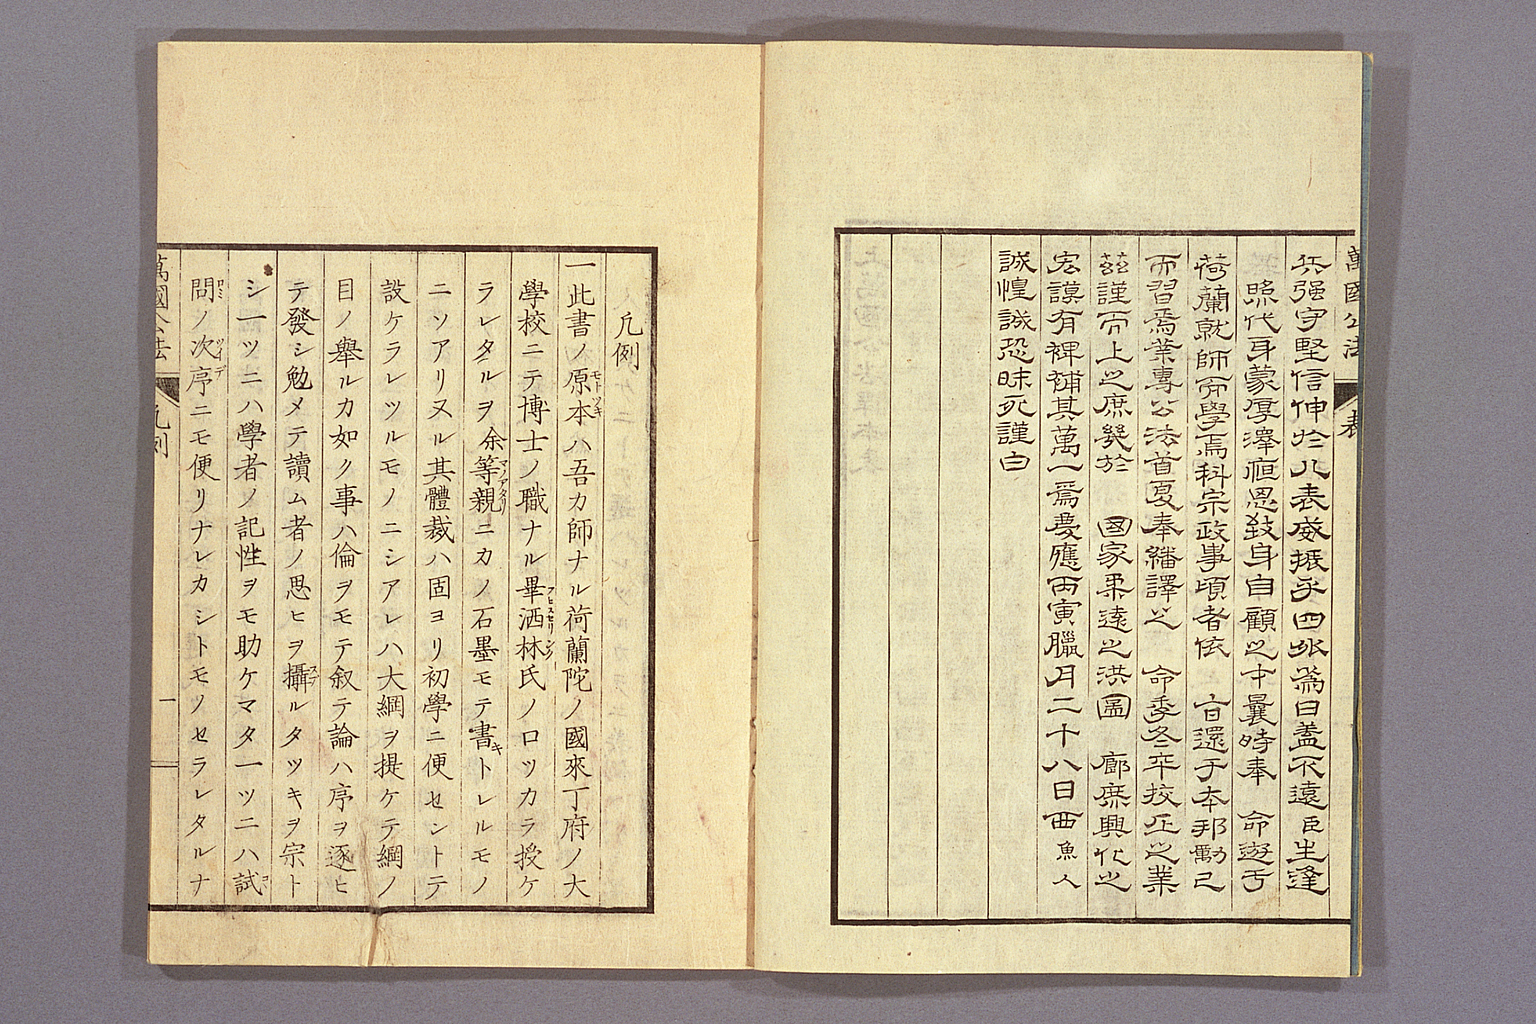 兵强守堅信伸於八表威振乎四外爲日蓋不遠臣生逢
熙代身蒙厚澤洭恩致身自顧之中曩時奉 命遊于
荷蘭就師而學焉科宗政事頃者依 台還于本邦勵己
而習焉業專公法首夏奉繙譯之 命季冬卒挍正之業
茲謹而上之庶幾於 國家柔遠之洪圖 廊廡興化之
宏謨有裨補其萬一焉慶應丙寅臘月二十八日西魚人
誠惶誠恐昧死謹白
萬國公法
表
凡例
一此書ノ原本ハ吾カ師ナル荷蘭陀ノ國來丁府ノ大
學校ニテ博士ノ職ナル畢洒林氏ノロツカラ授ケ
ラレタルヲ余等親ニカノ石墨モテ書トレルモノ
ニソアリヌル其體裁ハ固ヨリ初學ニ便セントテ
設ケラレツルモノニシアレハ大綱ヲ提ケテ綱ノ
目ノ舉ルカ如ク事ハ倫ヲモテ叙テ論ハ序ヲ逐ヒ
テ發シ勉メテ讀ム者ノ思ヒヲ攝ルタツキヲ宗ト
シ一ツニハ學者ノ記性ヲモ助ケマタ一ツニハ試
問ノ次序ニモ便リナレカシトモノセラレタルナ
萬國公法
凡例
一